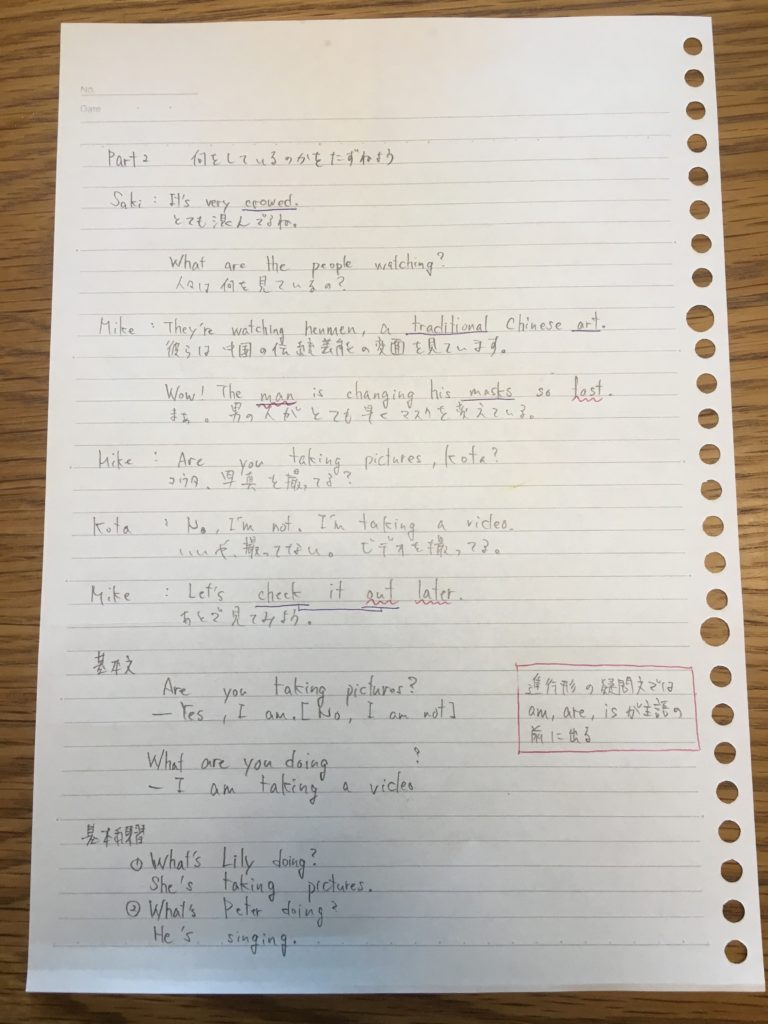 No.
Date
Part2 何をしているのかをたずねよう
Saki : It's very crowed.
とても混んでるね。
What are the people watching?
人々は何を見ているの?
Mike : They're watching henmen, a traditional Chinese art.
彼らは中国の伝統芸能の変面を見ています。
Wow! The man is changing his masks so fast.
まぁ。男の人がとても早くマスクを変えている。
Mike : Are you taking pictures, Kota?
コウタ、写真を撮ってる?
Kota : No, I'm not. I'm taking a video.
いいや、撮ってない。ビデオを撮ってる。
Mike : Let's check it out later.
あとで見てみよう。
基本文
Are you taking pictures?
— Yes, I am. [No, I am not]
進行形の疑問文では
am, are, is が主語の
前に出る
What are you doing ?
— I am taking a video
基本練習
① What's Lily doing?
She's taking pictures.
② What's Peter doing?
He's singing.